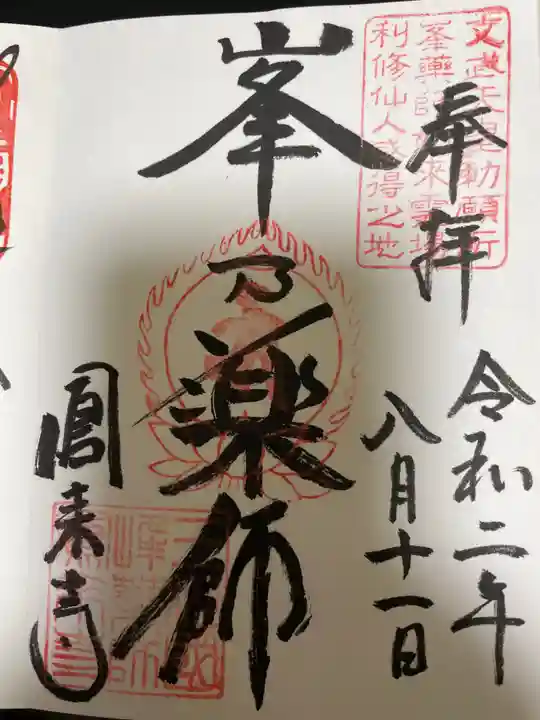 奉拝
令和二年
八月十一日
文武天皇勅願所
峯薬師如来霊場
利修仙人感得之地
峯乃薬師
鳳来寺